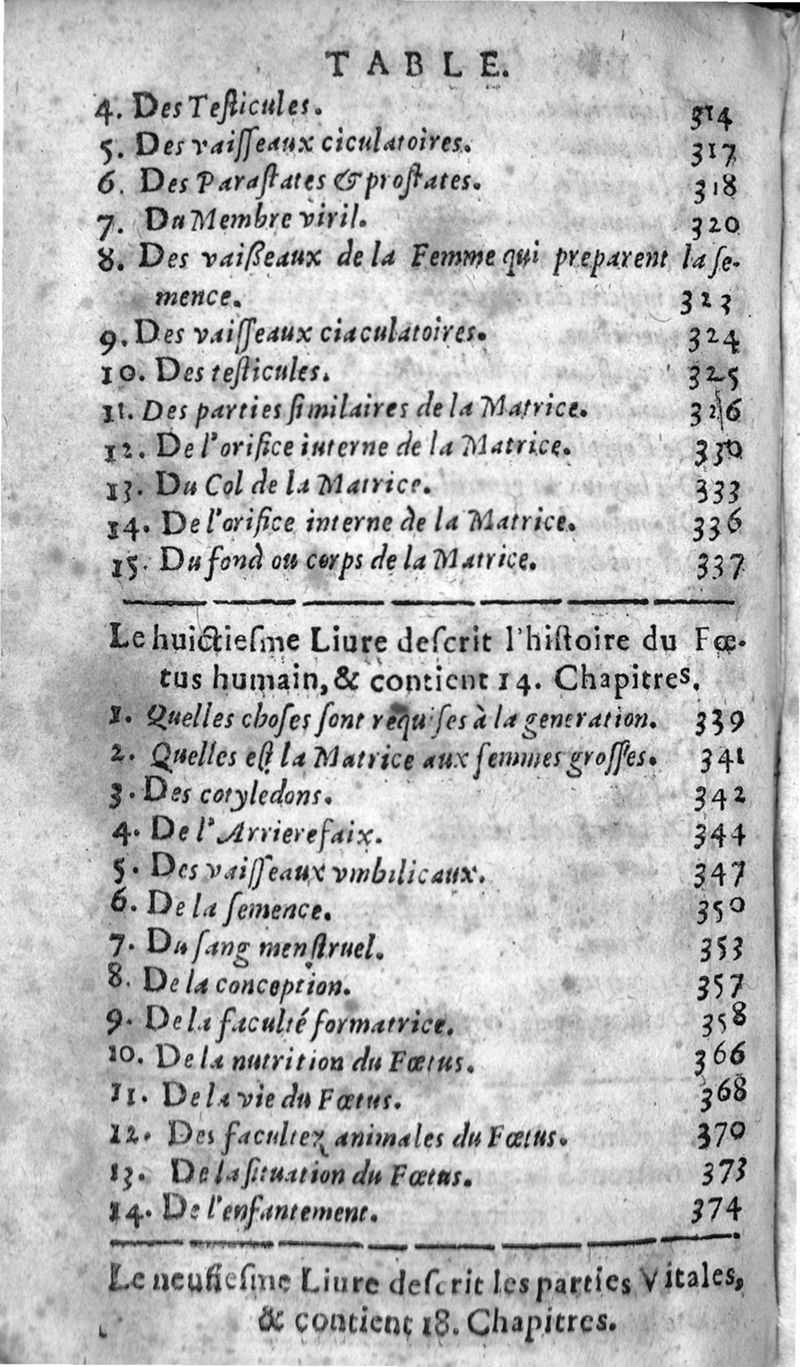 TABLE.
4. Des Teſticules. 314
5. Des vaiſſeaux ciculatoires. 317
6. Des Paraſtates & proſtates. 318
7. Du Membre viril. 320
8. Des vaißeaux de la Femme qui preparent la ſe-
mence. 323
9. Des vaiſſeaux ciaculatoires. 324
10. Des teſticules. 325
11. Des parties ſimilaires de la Matrice. 326
12. De l'orifice interne de la Matrice. 330
13. Du Col de la Matrice. 333
14. De l'orifice interne de la Matrice. 336
15. Du fond ou corps de la Matrice. 337
Le huictieſme Liure deſcrit l'hiſtoire du Fœ-
tus humain, & contient 14. Chapitres.
1. Quelles choſes ſont requiſes à la generation. 339
2. Quelles eſt la Matrice aux femmes groſſes. 341
3. Des cotyledons. 342
4. De l'Arrierefaix. 344
5. Des vaiſſeaux vmbilicaux. 347
6. De la ſemence. 350
7. Du ſang menſtruel. 353
8. De la conception. 357
9. De la faculté formatrice. 358
10. De la nutrition du Fœtus. 366
11. De la vie du Fœtus. 368
12. Des facultez animales du Fœtus. 370
13. De la ſituation du Fœtus. 373
14. De l'enfantement. 374
Le neufieſme Liure deſcrit les parties Vitales,
& contient 18. Chapitres.